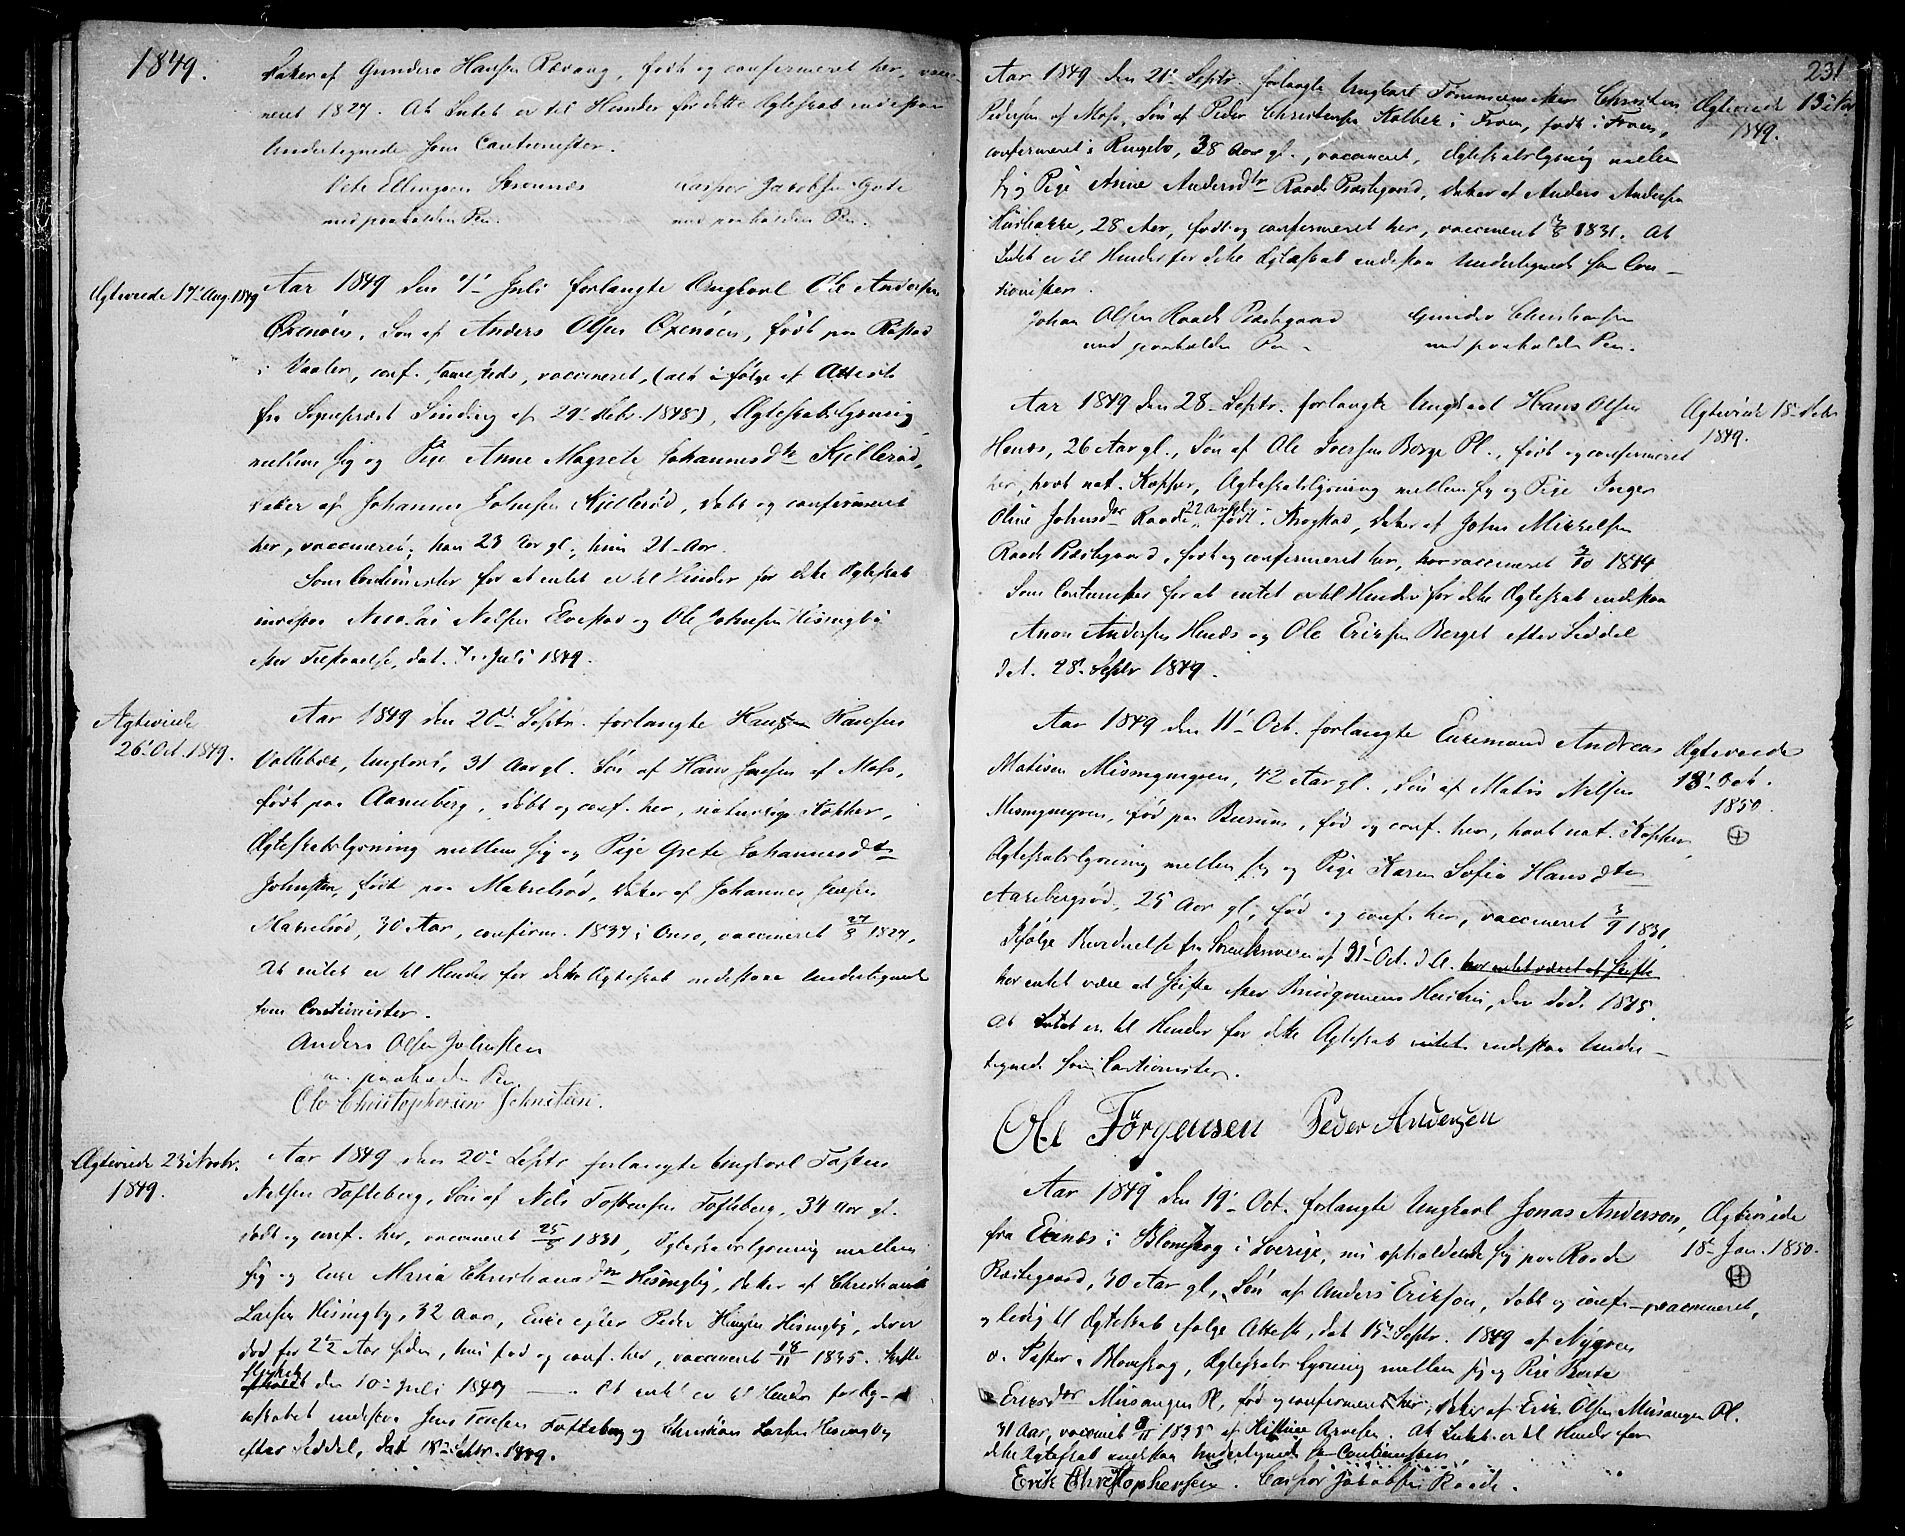 1849.
Datter af Gunders Hansen Rævaug, født og confirmeret her, vacci-
neret 1827. At Intet er til Hinder for dette Ægteskab indestaae
Undertegnede som Cautionister.
Ellingsen Casper Jacobsen
med paaholden Pen. med paaholden Pen.
Ægteviede 17' Aug. 1849
Aar 1849 den Juli forlangte Ungkarl Ole Andersen
Oxenøen, Søn af Anders Olsen Oxenøen, født paa
i Vaaler, conf. sammesteds, vaccineret, (alt ifølge af Attest
fra Sognepræst Sinding af 29' 1848), Ægteskabslysning
mellem sig og Pige Anne Magrete Johannesdtr Kjellerød,
Datter af Johannes Johnsen Kjellerød, døbt og confirmeret
her, vaccineret; han 23 Aar gl., hun 21 Aar.
Som Cautionister for at intet er til Hinder for dette Ægteskab
indestaae Nicolai Nilsen og Ole Johnsen Hisingby
efter Tilstaaelse, dat. 7. Juli 1849.
Ægteviede
26' Oct. 1849.
Aar 1849 den 20de Septr. forlangte Hans Hansen
Vallebæk, Ungkarl, 31 Aar gl. Søn af Hans Jensen af Moss,
født paa Aanneberg, døbt og conf. her, naturlige Kopper,
Ægteskabslysning mellem sig og Pige Grete Johannesdtr
Johnsten, født paa Makrelrød, Datter af Johannes Jensen
Makrelrød, 30 Aar, confirm. 1837 i Onsø, vaccineret 27/8 1827,
At intet er til Hinder for dette Ægteskab indestaae Undertegnede
som Cautionister.
Anders Olsen Johnsten
m. paaholden Pen
Ole Christophersen Johnsten.
Ægteviede 23' Novbr.
1849.
Aar 1849 den 20' Septr forlangte Ungkarl Tosten
Nilsen Tofteberg, Søn af Nils Tostensen Tofteberg, 34 Aar gl.
døbt og conf. her, vaccineret 25/5 1831, Ægteskabslysning mellem
sig og Enke Maria Christiansdtr Hisingby, Datter af Christian
Larsen Hisingby, 32 Aar, Enke efter Peder Hisingby, der er
død for 2½ Aar siden, hun fød og conf. her, vaccineret 18/11 1835. Skifte
afholdt den 10' Juli 1849 — . At intet er til Hinder for Æg-
teskabet indestaae Jens Tofteberg og Christian Larsen Hisingby
efter Seddel, dat 18' Septbr. 1849.
231
Aar 1849 den 21' Septr. forlangte Ungkarl Christen
Pedersen af Moss, Søn af Peder Christensen Kolbek i Froen, født i Froen,
confirmeret i Ringebo, 38 Aar gl., vaccineret, Ægteskabslysning mellem
sig og Pige Anne Andersdtr Raade Præstegaard, Datter af Anders Andersen
28 Aar, født og confirmeret her, vaccineret 1831. At
Intet er til Hinder for dette Ægteskab indestaae Undertegnede som Cau-
tionister.
Johan Olsen Raade Præstegaard Gunder Christensen
med paaholden Pen. med paaholden Pen.
Ægteviede
1849.
Aar 1849 den 28' Septr. forlangte Ungkarl Hans Olsen
Henæs, 26 Aar gl., Søn af Ole Iversen Borge Pl., født og confirmeret
her, havt nat. Kopper, Ægteskabslysning mellem sig og Pige Inger
Oline Johnsdtr Raade, 22 Aar gl., født i Skogstad, Datter af John Mikkelsen
Raade Præstegaard, født og confirmeret her, vaccineret 3/10 1844
Som Cautionister for at intet er til Hinder for dette Ægteskab indestaae
Anon Andersen Henæs og Ole Eriksen Berget efter Seddel
dat. 28' Septr 1849.
Ægteviede 15'
1849.
Aar 1849 den 11' Oct. forlangte Enkemand Andreas
Matisen Misingmyren, 42 Aar gl., Søn af Matis Nilsen
Misingmyren, fød paa Burum, fød og conf. her, havt nat. Kopper,
Ægteskabslysning mellem sig og Pige Karen Sofia Hansdtr
Aarebergsrød, 25 Aar gl., fød og conf. her, vaccineret 3/9 1831,
Ifølge Bevidnelse fra Sorenskriveren af 31' Oct. d.A. har intet været at skifte
har intet være at skifte efter Brudgomens Hustru, der døde 1845.
At Intet er til Hinder for dette Ægteskab indestaae Under-
tegnede som Cautionister.
Ole Jörgensen Peder Andersen
Ægteviede
18'
1850.
Aar 1849 den 19' Oct. forlangte Ungkarl Jonas Anderson,
fra i Blomskog i Sverige, nu opholdende sig paa Raade
Præstegaard, 30 Aar gl., Søn af Anders Erikson, døbt og conf. vaccineret,
og ledig til Ægteskab ifølge Attest, dat 15' Septr. 1849 af Nygren
v. Pastor i Blomskog, Ægteskabslysning mellem sig og Pige Berta
Eriksdtr Musangen Pl., fød og confirmeret her, Datter af Erik Olsen Musangen Pl.
31 Aar, vaccinet 8/11 1835 af Arnesen. At Intet er til Hinder for
dette Ægteskab indestaae Undertegnede som Cautionister.
Erik Christophersen. Casper Jakobsen Raade.
Ægteviede
18' Jan. 1850.